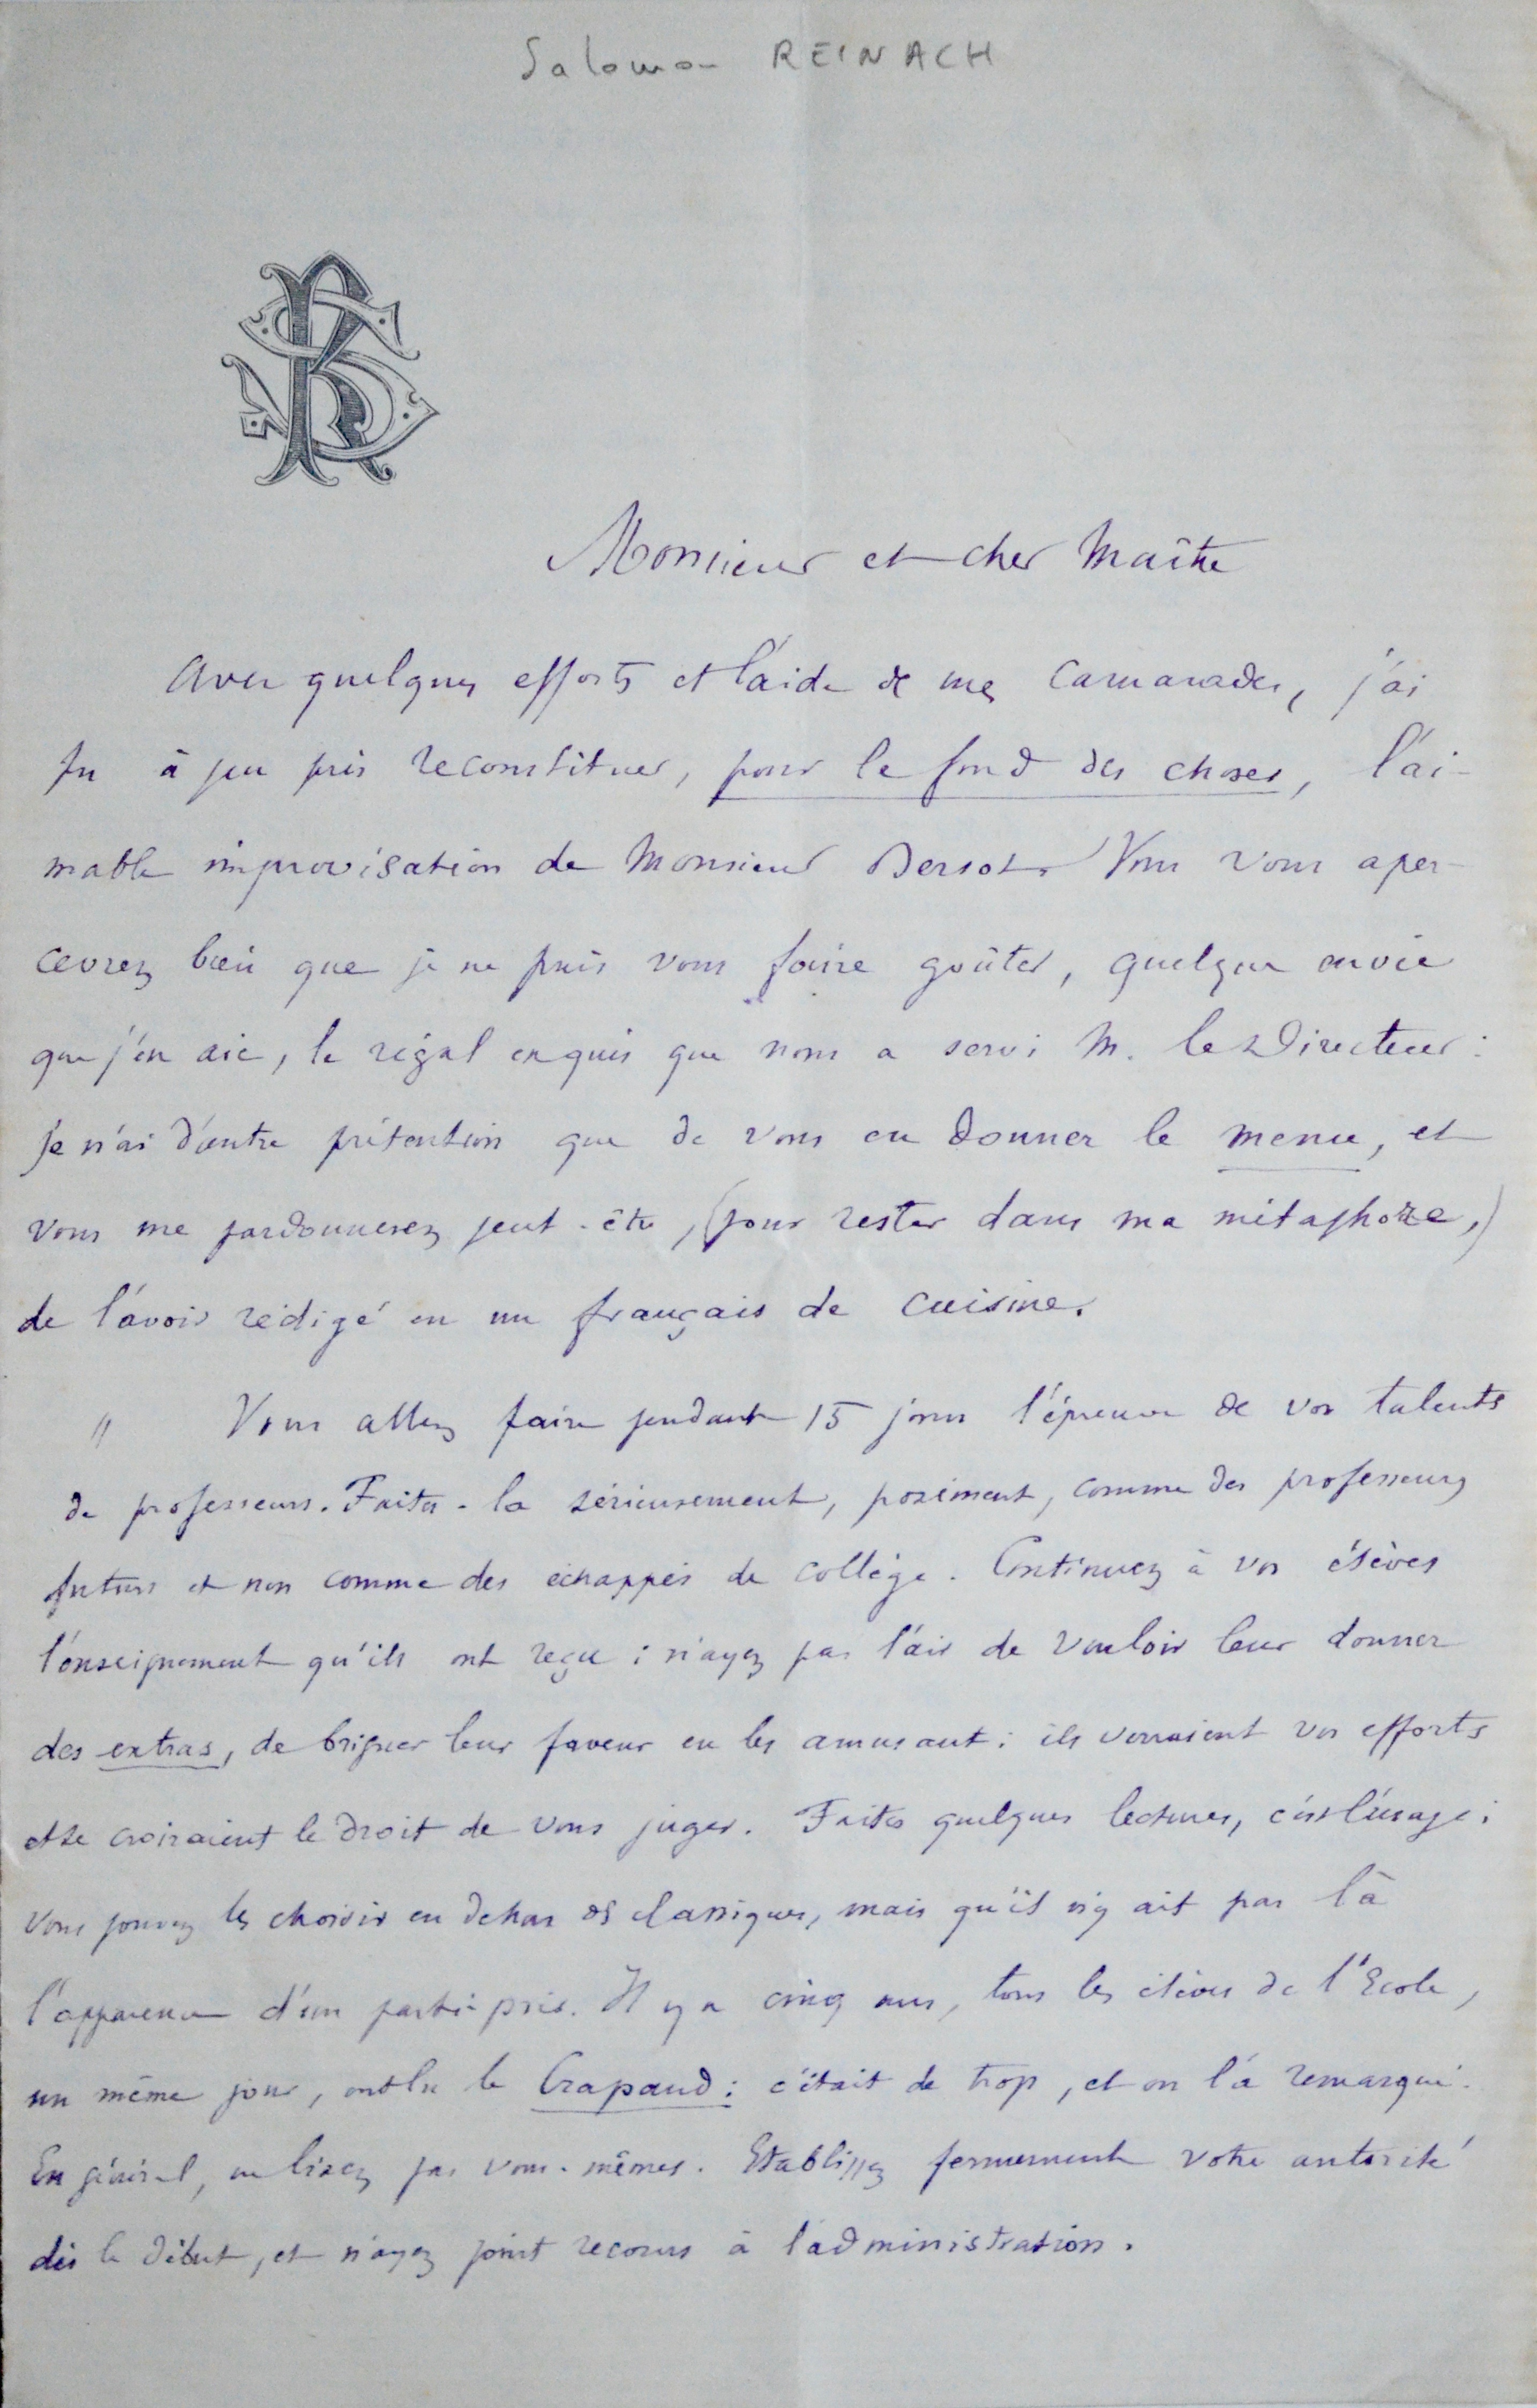 Salomon REINACH
SR
Monsieur et cher Maître
Avec quelques efforts et l'aide de mes camarades, j'ai
pu à peu près reconstituer, pour le fond des choses, l'ai-
mable improvisation de Monsieur Bersot. Vous vous aper-
cevrez bien que je ne puis vous faire goûter, quelque envie
que j'en aie, le régal exquis que nous a servi M. le Directeur :
je n'ai d'autre prétention que de vous en donner le menu, et
vous me pardonnerez peut-être, (pour rester dans ma métaphore,)
de l'avoir rédigé en un français de cuisine.
" Vous allez faire pendant 15 jours l'épreuve de vos talents
de professeurs. Faites-la sérieusement, posément, comme des professeurs
futurs et non comme des échappés de collège. Continuez à vos élèves
l'enseignement qu'ils ont reçu ; n'ayez pas l'air de vouloir leur donner
des extras, de briguer leur faveur en les amusant : ils verraient vos efforts
et se croiraient le droit de vous juger. Faites quelques lectures, c'est l'usage ;
vous pouvez les choisir en dehors des classiques, mais qu'il n'y ait pas là
l'apparence d'un parti pris. Il y a cinq ans, tous les élèves de l'Ecole,
un même jour, ont lu le Crapaud : c'était de trop, et on l'a remarqué.
En général, ne lisez pas vous-mêmes. Etablissez fermement votre autorité
dès le début, et n'ayez point recours à l'administration.